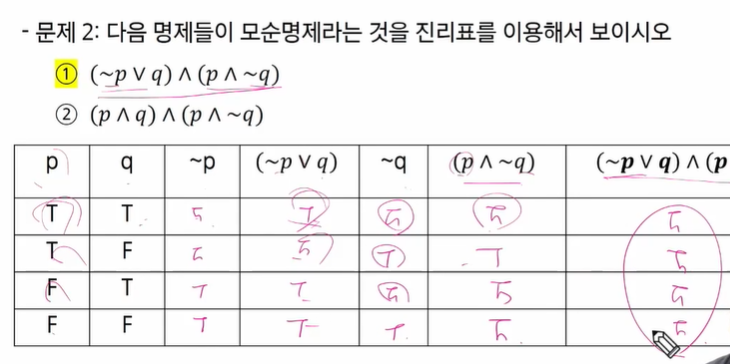 - 문제 2: 다음 명제들이 모순명제라는 것을 진리표를 이용해서 보이시오
① (~p ∨ q) ∧ (p ∧ ~q)
② (p ∧ q) ∧ (p ∧ ~q)
p q ~p (~p ∨ q) ~q (p ∧ ~q) (~p ∨ q) ∧ (p
T T F T F F F
T F F F T T F
F T T T F F F
F F T T T F F